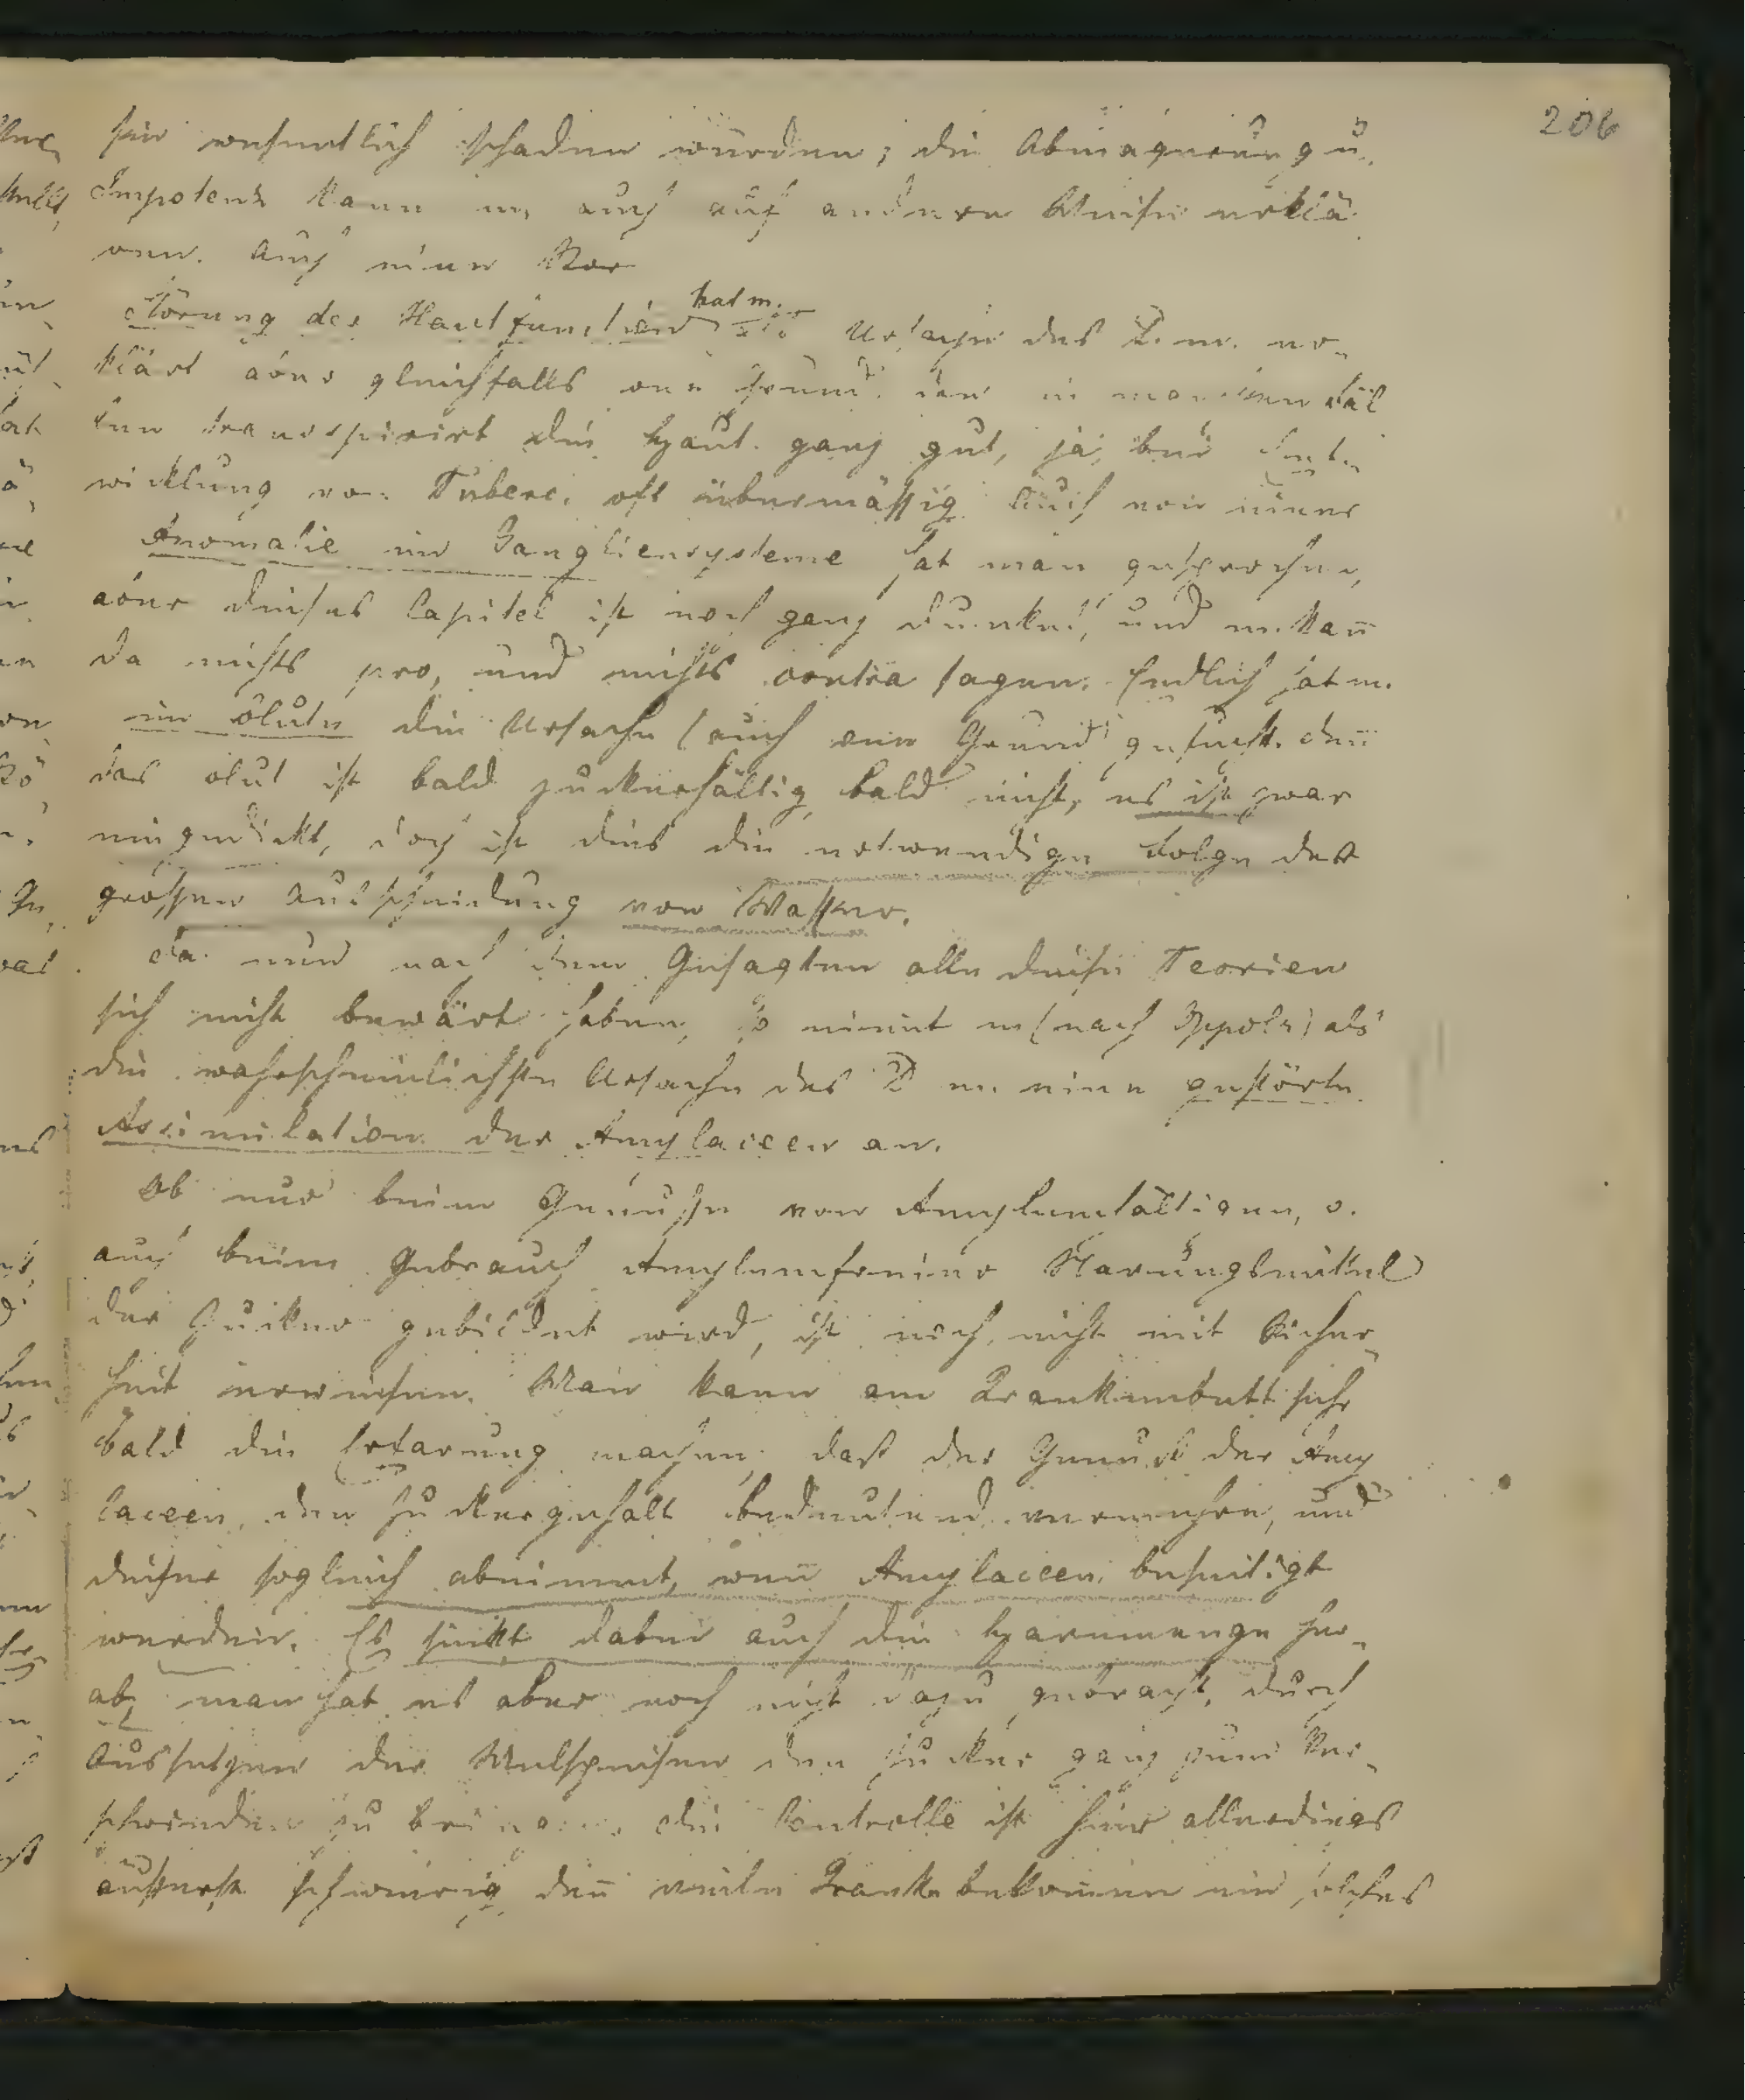 206
sie wesentlich schaden würden; die Abmagerung u.
Impotenz kann m. auch auf andere Weise erklä-
ren. Auch einen Vor
Störung der Hautfunction hat m. als Ursache des D. m. er-
klärt aber gleichfalls one Grund, den in manchen Fäl-
len transspirirt die Haut ganz gut, ja, bei Ent-
wicklung von Tuberc. oft übermässig. Auch von einer
Anomalie im Gangliensysteme hat man gesprochen,
aber dieses Capitel ist noch ganz dunkel, und m. kan̄
da nichts pro, und nichts contra sagen. Endlich hat m.
im Blute die Ursache (auch one Grund) gesucht. den̄
das Blut ist bald zuckerhältig, bald nicht, es ist zwar
eingedickt, doch ist dies die notwendige Folge der
grossen Ausscheidung von Wasser.
Da nun nach dem Gesagten alle diese Teorien
sich nicht bewärt haben, so nimmt m (nach Oppolz) als
die wahrscheinlichste Ursache des D m. eine gestörte
Assimilation der Amylaceen an.
Ob nur beim Genusse von Amylumhältigen, o.
auch beim Gebrauch Amylumfreier Narungsmittel
der Zuker gebildet wird, ist noch nicht mit Sicher-
heit erwiesen. Man kann am Krankenbett sehr
bald die Erfarung machen, dass der Genuss der Amy
laceen den Zuckergehalt bedeutend vermehre, und
dieser sogleich abnimmt, wen̄ Amylaceen beseitigt
werden. Es sinkt dabei auch die Harnmenge her-
ab, man hat es aber noch nicht dazu gebracht, durch
Aussetzen der Mehlspeisen den Zucker ganz zum Ver-
schwinden zu bringen. Die Controlle ist hier allerdings
äusserst schwierig den̄ viele Kranke bekom̄en ein solches